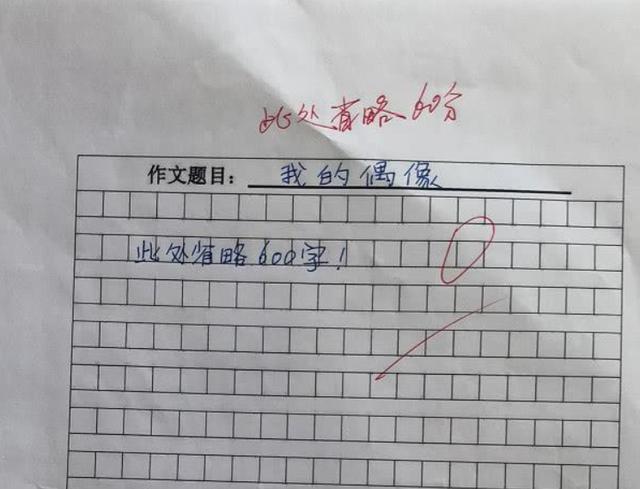 此处省略60分
作文题目：我的偶像
此处省略600字！
0